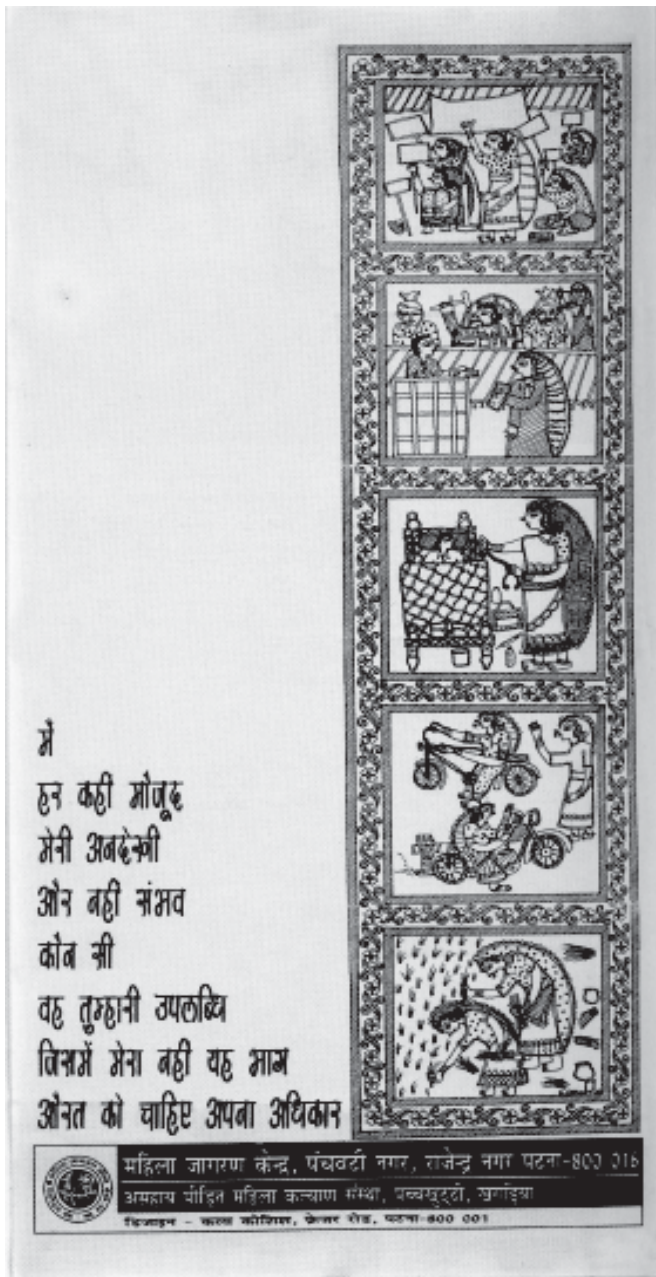 में
हर कहीं मौजूद
मेरी अनदेखी
और नहीं संभव
कौन सी
वह तुम्हारी उपलब्धि
जिसमें मेरा नहीं यह भाग
औरत को चाहिए अपना अधिकार
महिला जागरण केन्द्र, पंचवटी नगर, राजेन्द्र नगर पटना-800 016
असहाय पीड़ित महिला कल्याण संस्था, पच्चखुट्टी, खगड़िया
डिजाइन - कला कोशिश, फ्रेजर रोड, पटना-800 001